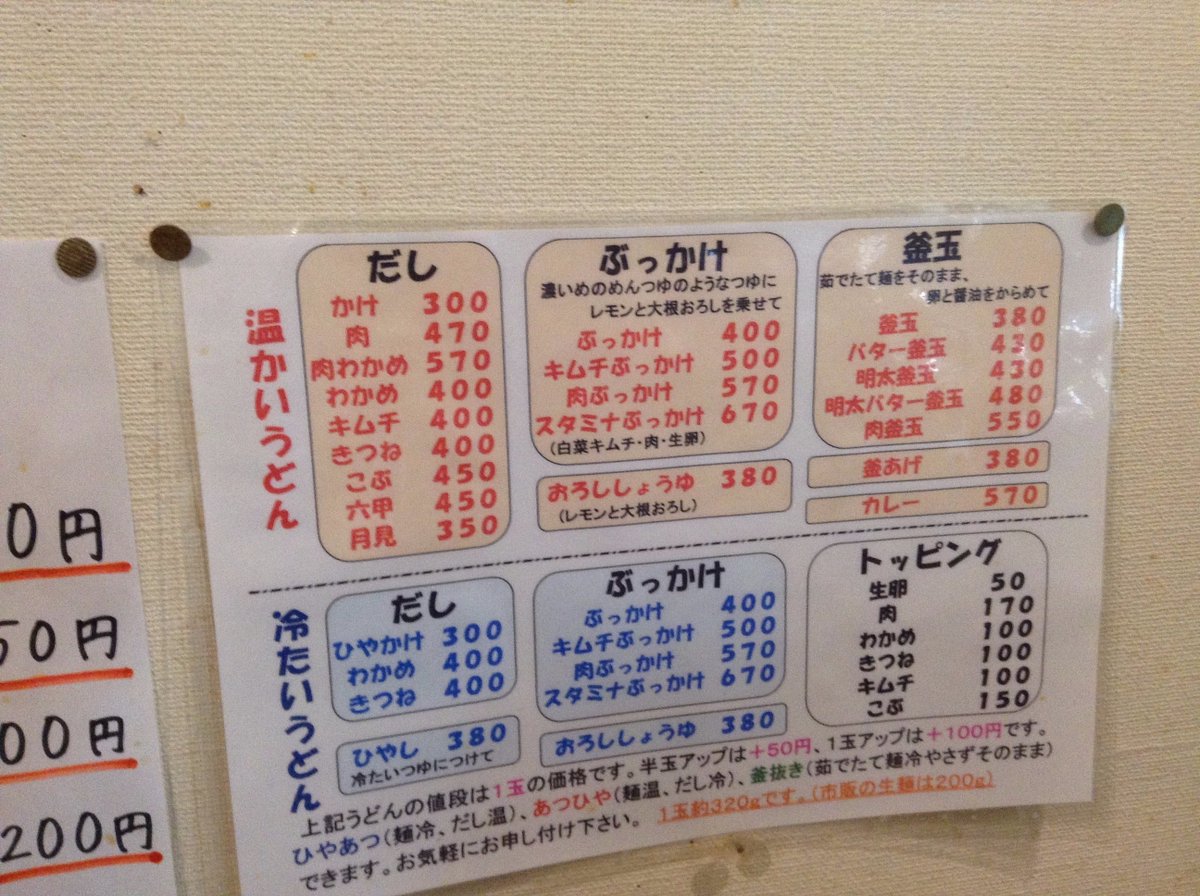 0円
50円
00円
200円
温かいうどん
だし
かけ 300
肉 470
肉わかめ 570
わかめ 400
キムチ 400
きつね 400
こぶ 450
六甲 450
月見 350
ぶっかけ
濃いめのめんつゆのようなつゆに
レモンと大根おろしを乗せて
ぶっかけ 400
キムチぶっかけ 500
肉ぶっかけ 570
スタミナぶっかけ 670
(白菜キムチ・肉・生卵)
おろししょうゆ 380
(レモンと大根おろし)
釜玉
茹でたて麺をそのまま、
卵と醤油をからめて
釜玉 380
バター釜玉 430
明太釜玉 430
明太バター釜玉 480
肉釜玉 550
釜あげ 380
カレー 570
冷たいうどん
だし
ひやかけ 300
わかめ 400
きつね 400
ひやし 380
冷たいつゆにつけて
ぶっかけ
ぶっかけ 400
キムチぶっかけ 500
肉ぶっかけ 570
スタミナぶっかけ 670
おろししょうゆ 380
トッピング
生卵 50
肉 170
わかめ 100
きつね 100
キムチ 100
こぶ 150
上記うどんの値段は1玉の価格です。半玉アップは+50円、1玉アップは+100円です。
ひやあつ(麺冷、だし温)、あつひや(麺温、だし冷)、釜抜き(茹でたて麺冷やさずそのまま)
できます。お気軽にお申し付け下さい。 1玉約320gです。(市販の生麺は200g)